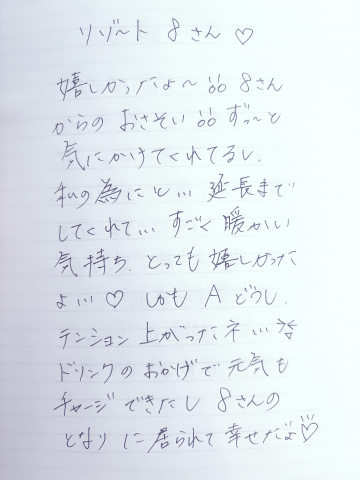 リゾート 8さん ♡
嬉しかったよ〜 !!o 8さん
からの おさそい !!o ずっ〜と
気にかけてくれてるし、
私の為にと… 延長まで
してくれて… すごく 暖かい
気持ち、とっても 嬉しかった
よ… ♡ しかも A どうし、
テンション 上がったネ…
ドリンクの おかげで 元気も
チャージ できたし 8さんの
となり に 居られて 幸せだよ♡